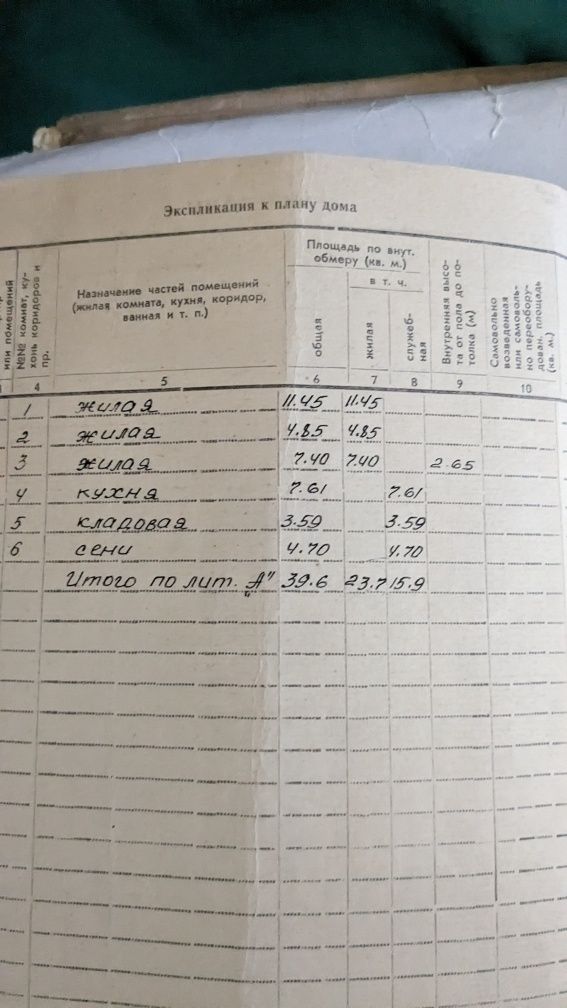 Экспликация к плану дома
или помещений
№№ комнат, ку-
хонь коридоров и
пр.
Назначение частей помещений
(жилая комната, кухня, коридор,
ванная и т. п.)
Площадь по внут.
обмеру (кв. м.)
общая
в т. ч.
жилая
служеб-
ная
Внутренняя высо-
та от пола до по-
толка (м)
Самовольно
возведенная
или самоволь-
но переобору-
дован. площадь
(кв. м.)
4 5 6 7 8 9 10
1 жилая 11.45 11.45
2 жилая 4.85 4.85
3 жилая 7.40 7.40 2.65
4 кухня 7.61 7.61
5 кладовая 3.59 3.59
6 сени 4.70 4.70
Итого по лит. „А" 39.6 23.7 15.9